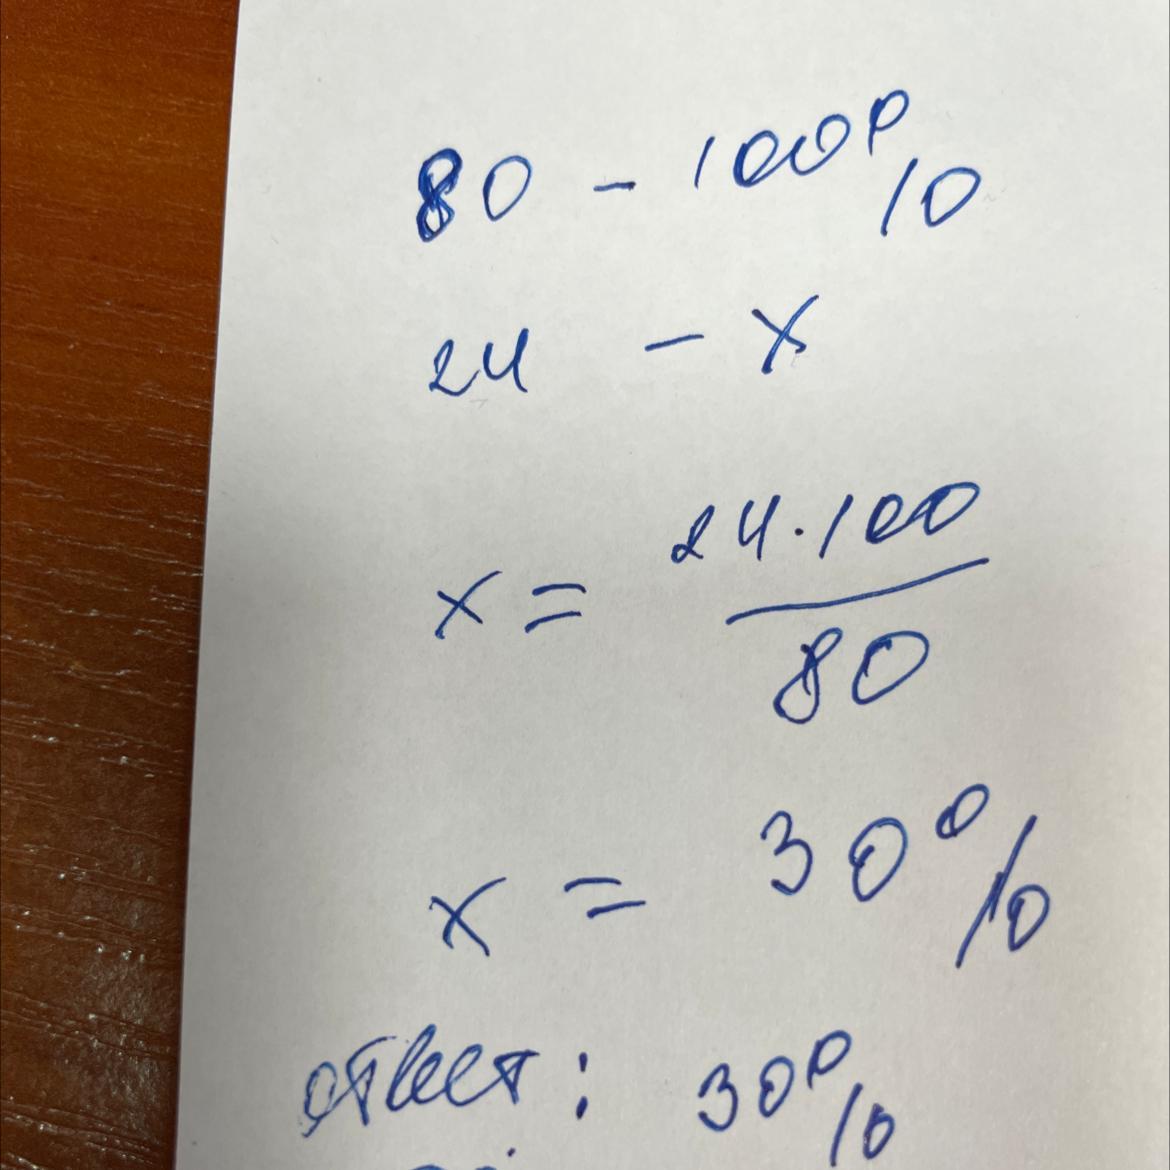 80 - 100%
24 - x
x = 24·100/80
x = 30%
ответ: 30%